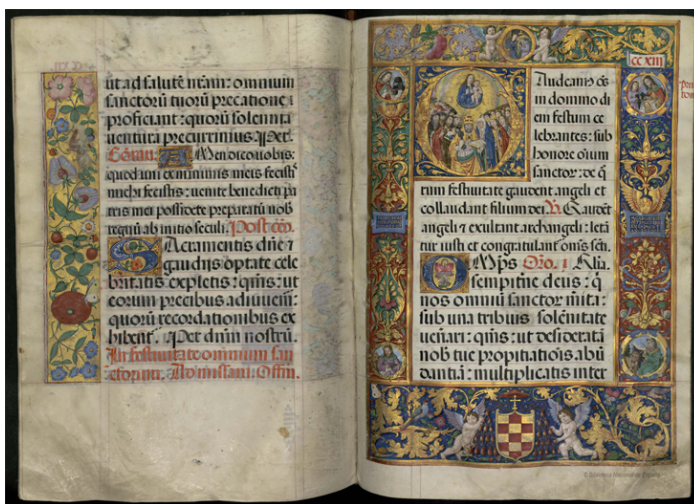 ut ad salutē nr̄am: omnium
sanctorū tuorū precatione
proficiant: quorū solennia
uentura precurrimus. Per.
Cōmu. Amen dico uobis:
quod uni ex minimis meis fecistis
michi fecistis: uenite benedicti pa
tris mei possidete preparatū uob
regnū ab initio seculi. Post cōō.
Sacramentis dn̄e ⁊
gaudijs optate cele
britatis expletis: qm̄s: ut
eorum precibus adiuuem̄:
quorū recordationibus ex
hibent᷑. Per dnm nostrū.
In festiuitate omnium san
ctorum. Ad missam. Offm̄.
cc xiii
Audeam9 oēs
in domino di
em festum ce
lebrantes: sub
honore oīum
sanctor: de q̄
rum festiuitate gaudent angeli et
collaudant filium dei. V. Gaudēt
angeli ⁊ exultant archangeli: letā
tur iusti et congratulant᷑ omīs scī.
Oīps Oro. Alia.
sempitne deus: q̄
nos omniū sanctor mīta:
sub una tribuis solēnitate
uen̄ari: qm̄s: ut desideratā
nob tue propitiatiōis abū
dantiā: multiplicatis inter
© Biblioteca Nacional de España